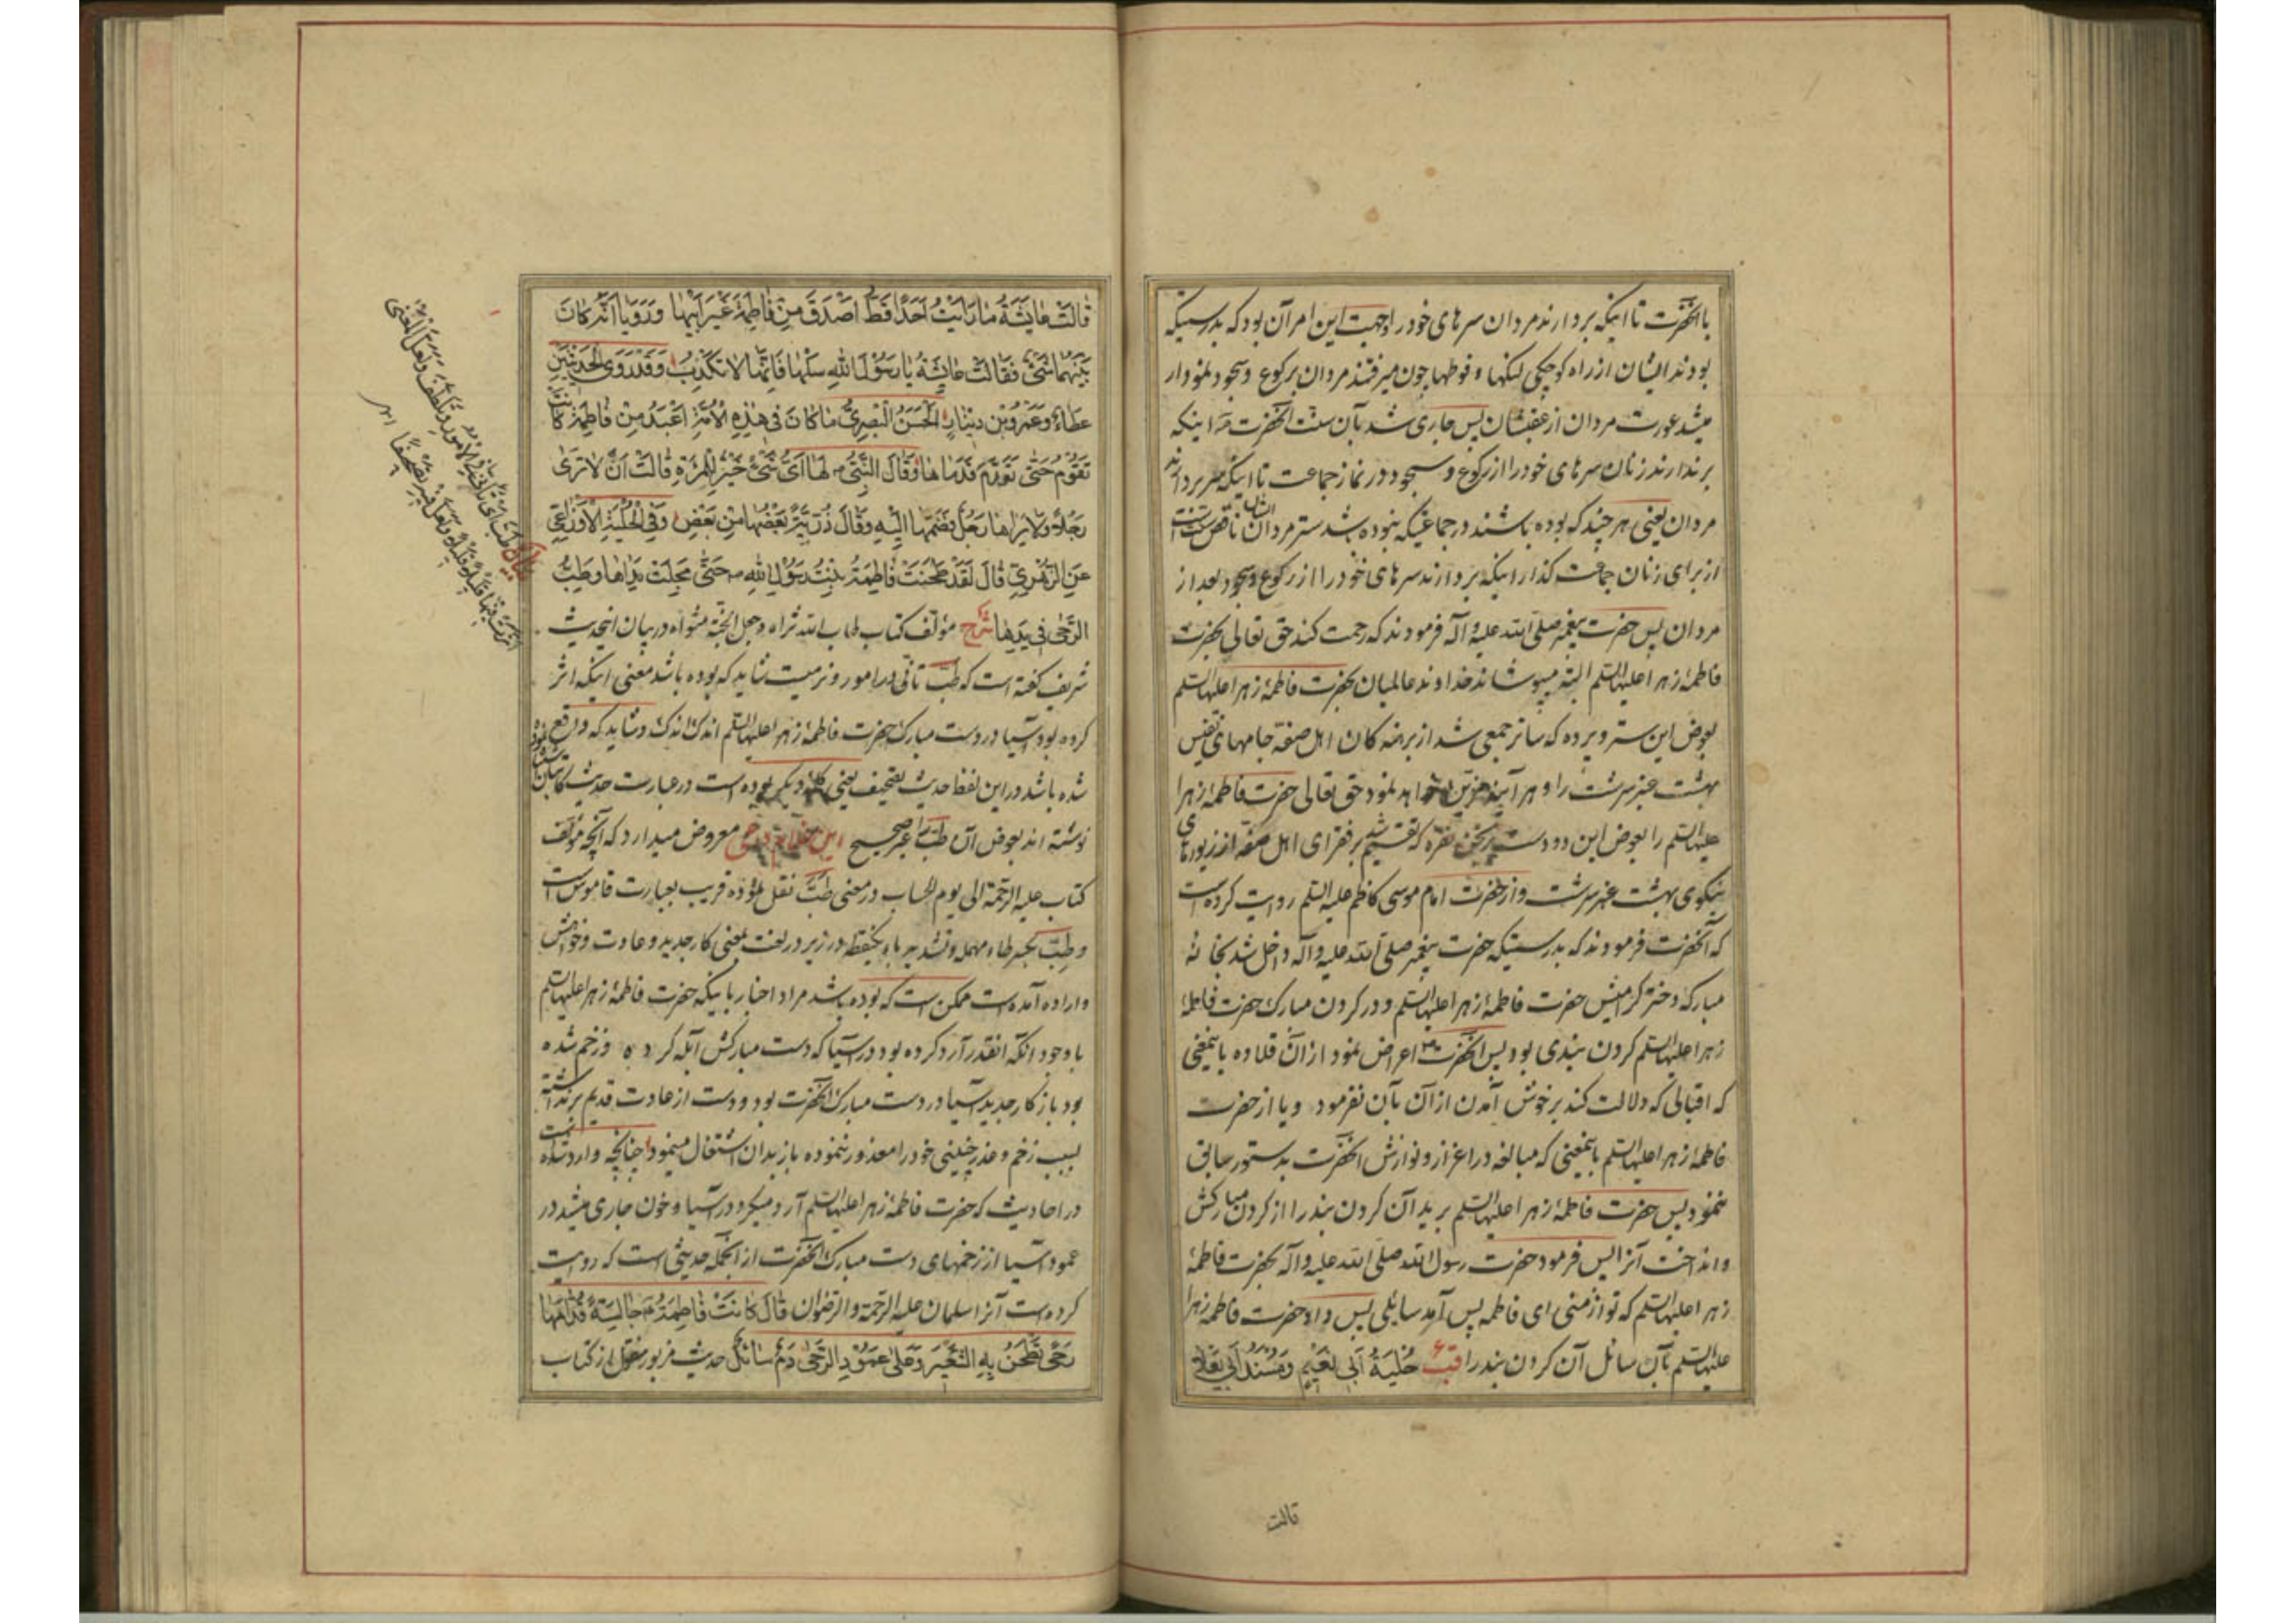 باآنحضرت تا اینکه بردارند مردان سرهای خود را وجهت این امر آن بود که بدرستیکه
بودند ایشان از راه کوچکی لنگها و فوطها چون میرفتند مردان برکوع و سجود نمودار
میشد عورت مردان از عقبشان پس جاری شد بآن سنت آنحضرت ص اینکه
برندارند زنان سرهای خود را از رکوع و سجود در نماز جماعت تا اینکه سر بردارند
مردان یعنی هر چند که بوده باشند در جماعتیکه نبوده باشد ستر مردان ناقص
از برای زنان جماعت گذار اینکه بردارند سرهای خود را از رکوع و سجود بعد از
مردان پس حضرت پیغمبر صلی الله علیه و آله فرمودند که رحمت کند حق تعالی بحضرت
فاطمهٔ زهرا علیها السلم البته میپوشاند خداوند عالمیان بحضرت فاطمهٔ زهرا علیها السلم
بعوض این ستر و پرده که ساتر جمعی شد از برهنه کان اهل صفه جامهای نفیس
بهشت عنبر سرشت را و هر آینه مزین خواهد نمود حق تعالی حضرت فاطمهٔ زهرا
علیها السلم را بعوض این دو دست برنجن نقره که تقسیم شد بر فقرای اهل صفه از زیورهای
نیکوی بهشت عنبر سرشت و از حضرت امام موسی کاظم علیه السلم روایت کرده است
که آنحضرت فرمودند که بدرستیکه حضرت پیغمبر صلی الله علیه و آله داخل شد بخانهٔ
مبارکه دختر گرامیش حضرت فاطمهٔ زهرا علیها السلم و در گردن مبارک حضرت فاطمهٔ
زهرا علیها السلم گردن بندی بود پس آنحضرت ص اعراض نمود از آن قلاده باینمعنی
که اقبالی که دلالت کند بر خوش آمدن از آن بآن نفرمود و یا از حضرت
فاطمهٔ زهرا علیها السلم باینمعنی که مبالغه در اعزاز و نوازش آنحضرت بدستور سابق
ننمود پس حضرت فاطمهٔ زهرا علیها السلم برید آن گردن بند را از گردن مبارکش
و انداخت آنرا پس فرمود حضرت رسول الله صلی الله علیه و آله بحضرت فاطمهٔ
زهرا علیها السلم که تو از منی ای فاطمه پس آمد سایلی پس داد حضرت فاطمه زهرا
علیها السلم بآن سائل آن گردن بند را قب حُلِیَةُ اَبی نُعَیمٍ وَمُسْنَدُ اَبی یَعْلی
قالت
قالَتْ عایِشَةُ ما رَاَیْتُ اَحَدًا قَطُّ اَصْدَقَ مِنْ فاطِمَةَ غَیْرَ اَبیها وَرَوَیا اَنَّهُ کانَ
بَیْنَهُما شَیْءٌ فَقالَتْ عایِشَةُ یا رَسُولَ اللهِ سَلْها فَاِنَّها لا تَکْذِبُ وَقَدْ رَوَی الحَدیثَیْنِ
عَطاءٌ وَعَمْرُوبْنُ دینارٍ الحَسَنُ البَصْرِیُّ ما کانَ فی هٰذِهِ الاُمَّةِ اَعْبَدُ مِنْ فاطِمَةَ کانَتْ
تَقُومُ حَتّی تَوَرَّمَ قَدَماها وَقالَ النَّبِیُّ ص لَها اَیُّ شَیْءٍ خَیْرٌ لِلْمَرْءَةِ قالَتْ اَنْ لا تَری
رَجُلًا وَلا یَراها رَجُلٌ فَضَمَّها اِلَیْهِ وَقالَ ذُرِّیَّةً بَعْضُها مِنْ بَعْضٍ وَفِی الحِلْیَةِ الاَوْزاعِیُّ
عَنِ الزُّهْرِیِّ قالَ لَقَدْ طَحَنَتْ فاطِمَةُ بِنْتُ رَسُولِ اللهِ ص حَتّی مَجِلَتْ یَداها وَطَبَّ
الرَّحی فی یَدِها شرح مؤلف کتاب طاب الله ثراه وجعل الجنة مثواه در بیان اینحدیث
شریف گفته است که طب تأنی در امور و نرمیست شاید که بوده باشد معنی اینکه اثر
کرده بود آسیا در دست مبارک حضرت فاطمهٔ زهرا علیها السلم اندک اندک و شاید که واقع
شده باشد در این لفظ حدیث تصحیف یعنی کلمهٔ دیگر بوده است در عبارت حدیث کاتبان
نوشته اند بعوض آن طب را غیر صحیح این معروض میدارد که آنچه مؤلف
کتاب علیه الرحمة الی یوم الحساب در معنی طبّ نقل نموده قریب بعبارت قاموس است
و طبّ بکسر طاء مهمله و تشدید باء یکنقطه در زیر در لغت بمعنی کار جدید و عادت و خواهش
و اراده آمده است ممکن است که بوده باشد مراد اخبار باینکه حضرت فاطمهٔ زهرا علیها السلم
با وجود آنکه آنقدر آرد کرده بود در آسیا که دست مبارکش آبله کرده و زخم شده
بود باز کار جدید آسیا در دست مبارک آنحضرت بود و دست از عادت قدیم برنداشته
بسبب زخم و عذر چنینی خود را معذور ننموده باز بدان اشتغال مینمود چنانچه وارد شده
در احادیث که حضرت فاطمهٔ زهرا علیها السلم آرد میکرد در آسیا و خون جاری میشد در
عمود آسیا از زخمهای دست مبارک آنحضرت از آنجمله حدیثی است که روایت
کرده است آنرا سلمان علیه الرحمة والرضوان قالَ کانَتْ فاطِمَةُ جالِسَةً قُدّامَها
رَحًی تَطْحَنُ بِهِ الشَّعیرَ وَعَلی عَمُودِ الرَّحی دَمٌ سائِلٌ حدیث مزبور منقول از کتاب
بیان طَبَّ ای تأنی فی الامور وتلطف ولعل المعنی
اثرت فیها قلیلا قلیلا ولعل فیه تصحیفًا